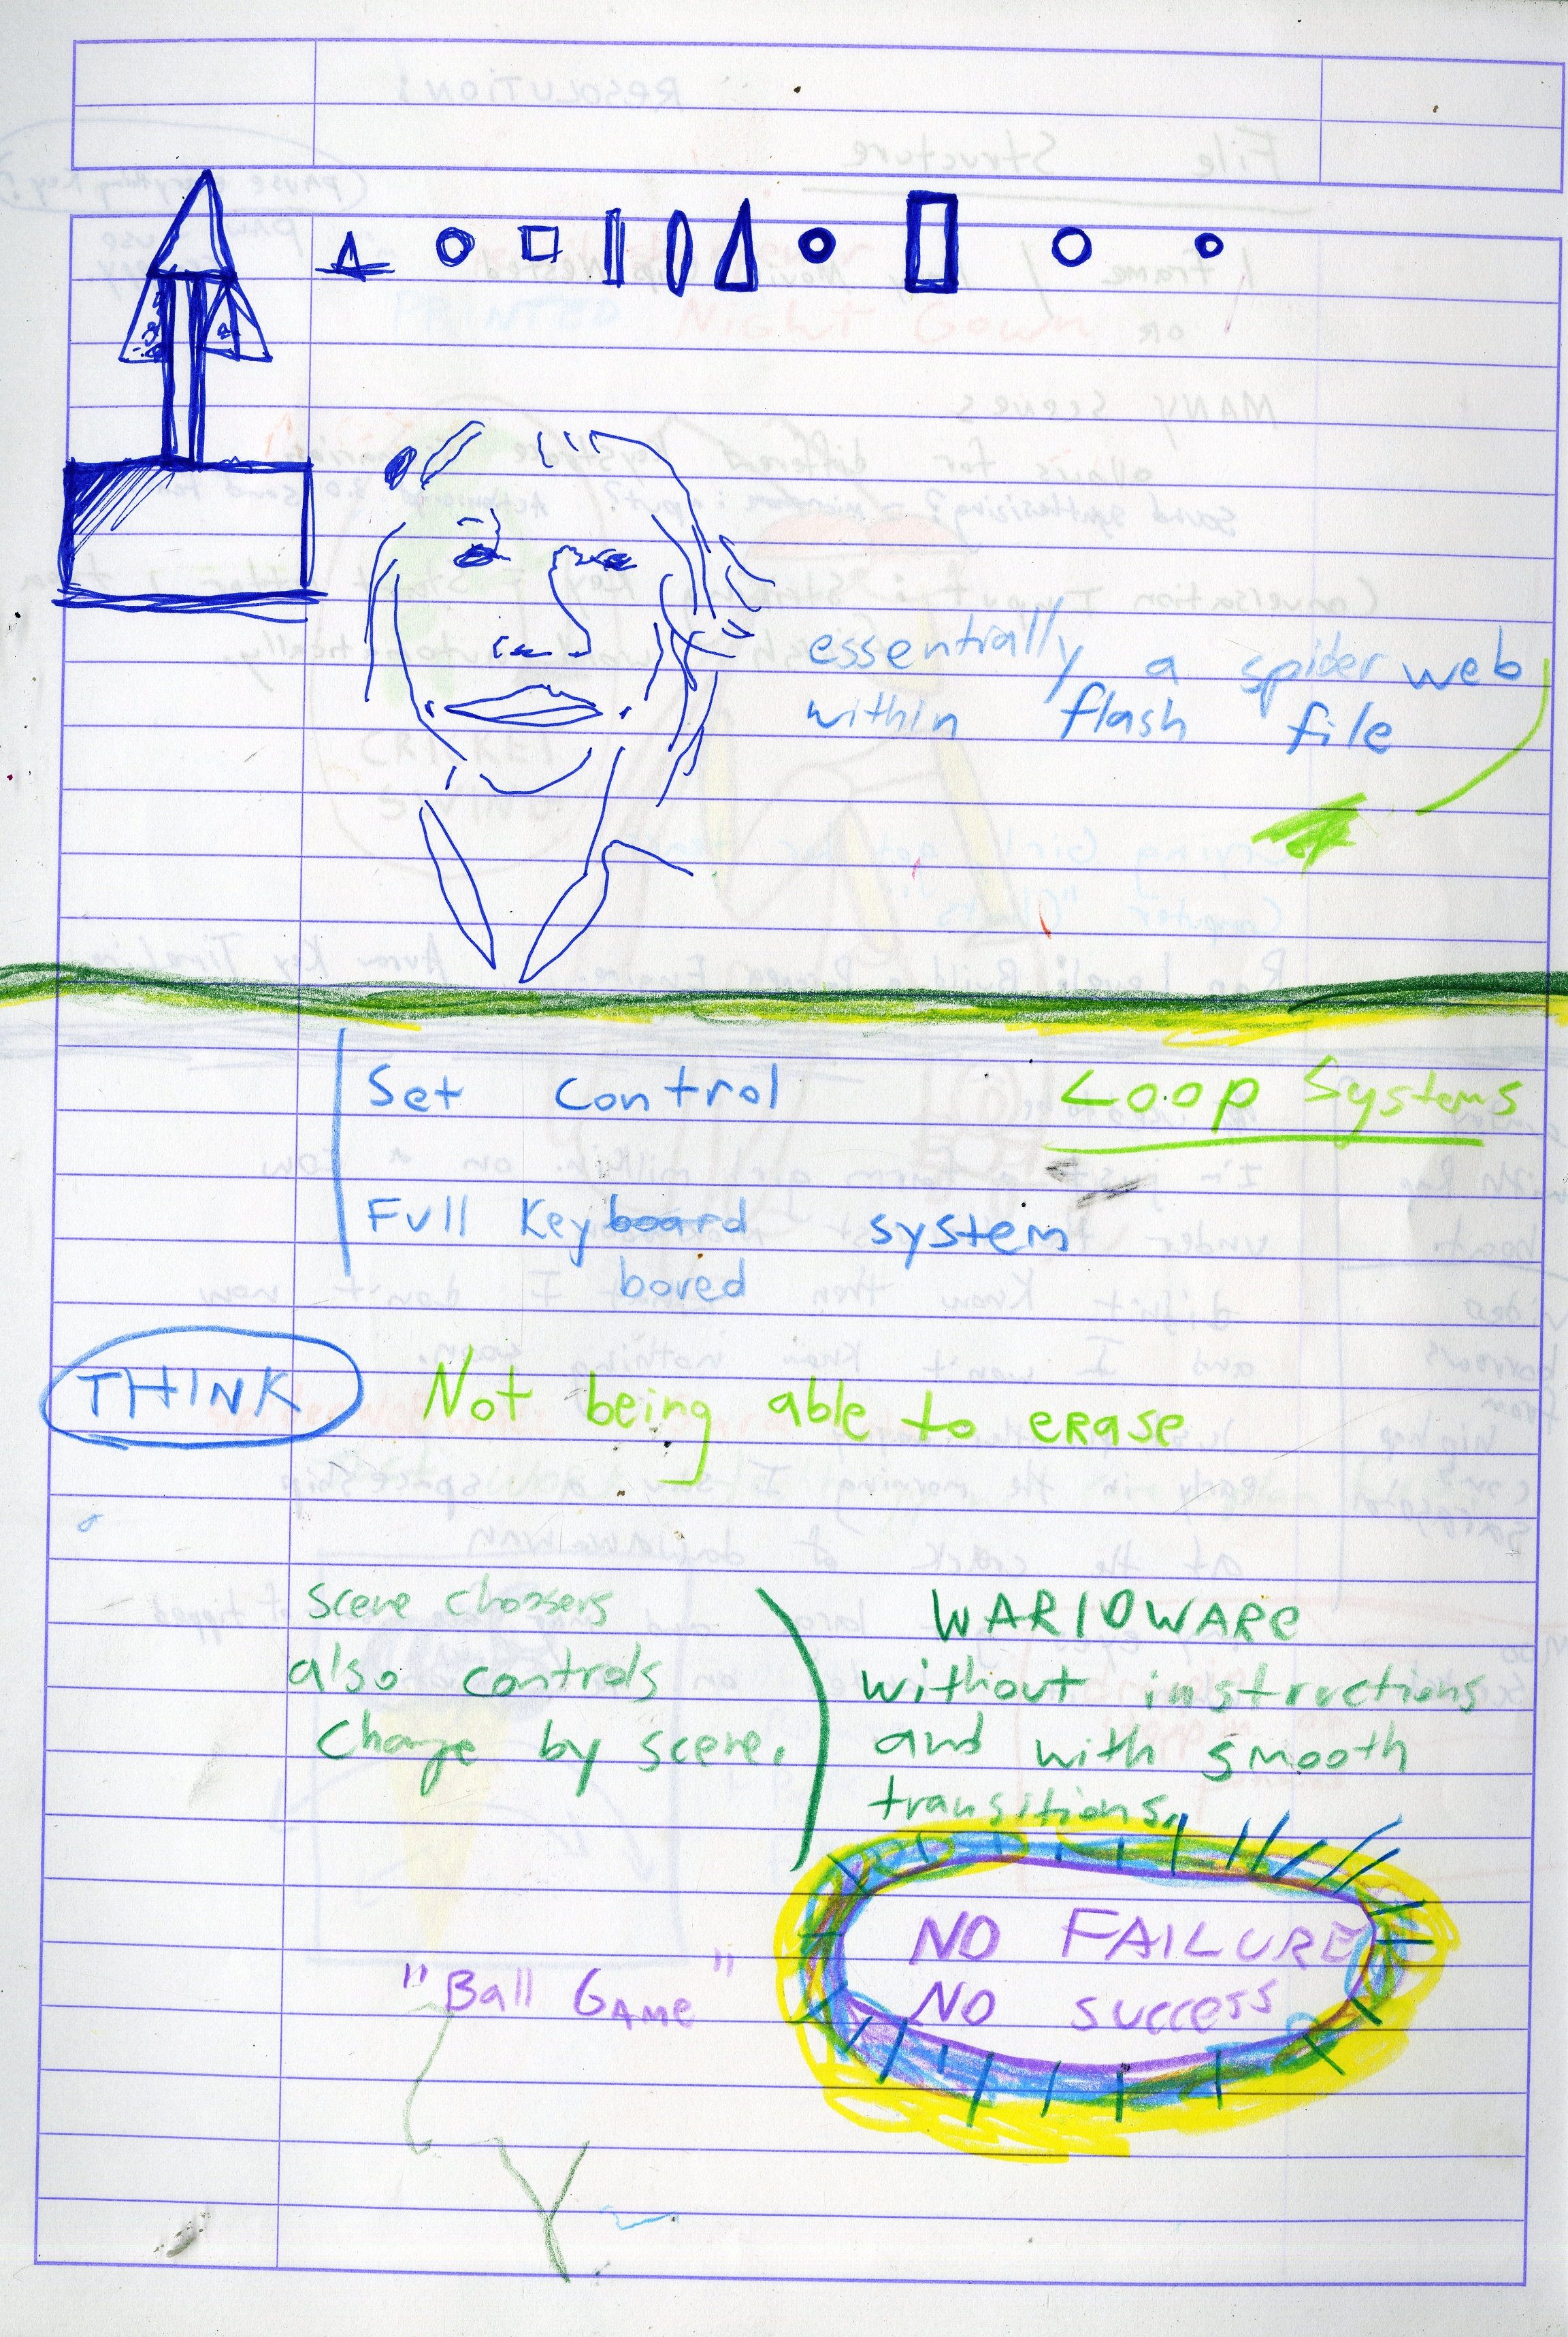 essentially a spider web
within flash file
Set control
Loop Systems
Full Keyboard system
bored
THINK
Not being able to erase
scene choosers
also controls
change by scene.
WARIOWARE
without instructions
and with smooth
transitions.
NO FAILURE
NO success
"Ball GAME"